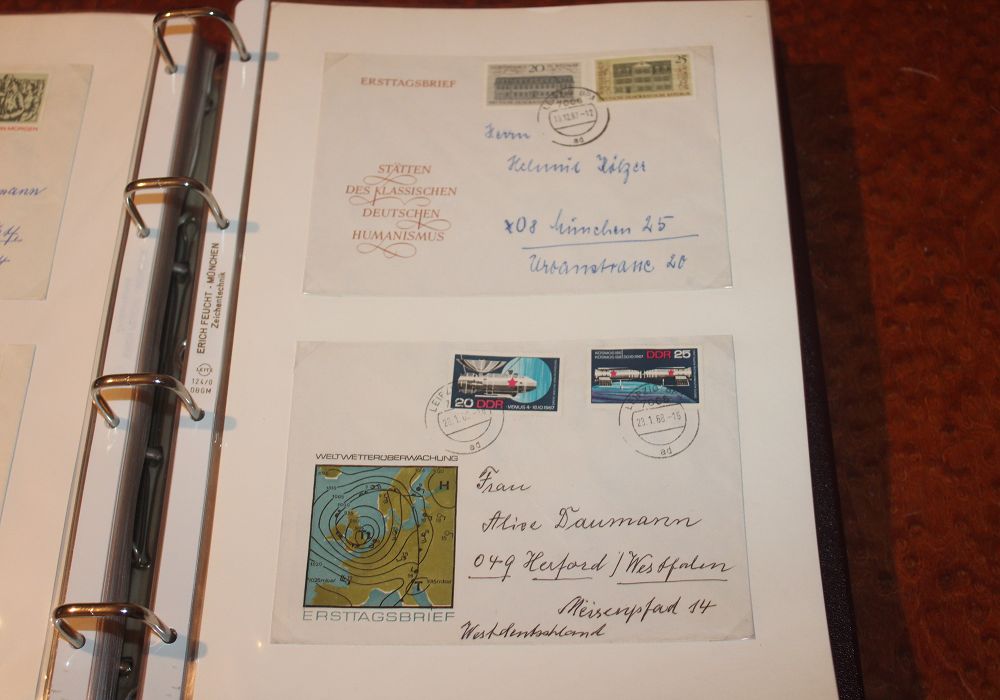 N MORGEN
mann
4
ERICH FEUCHT - MÜNCHEN
Zeichentechnik
LEITZ
124/0
DBGM
ERSTTAGSBRIEF
20
25
DEUTSCHE DEMOKRATISCHE REPUBLIK
7006
13.12.67-12
ad
STÄTTEN
DES KLASSISCHEN
DEUTSCHEN
HUMANISMUS
Herrn
Helmut Hölzer
x08 München 25
Urbanstrasse 20
20 DDR
VENUS 4 · 18.10.1967
DDR 25
LEIPZIG
7006
23.1.68-16
ad
ad
WELTWETTERÜBERWACHUNG
H
T
1015
1000
1020
1025mbar
ERSTTAGSBRIEF
Frau
Alice Daumann
049 Herford / Westfalen
Meisenpfad 14
Westdeutschland